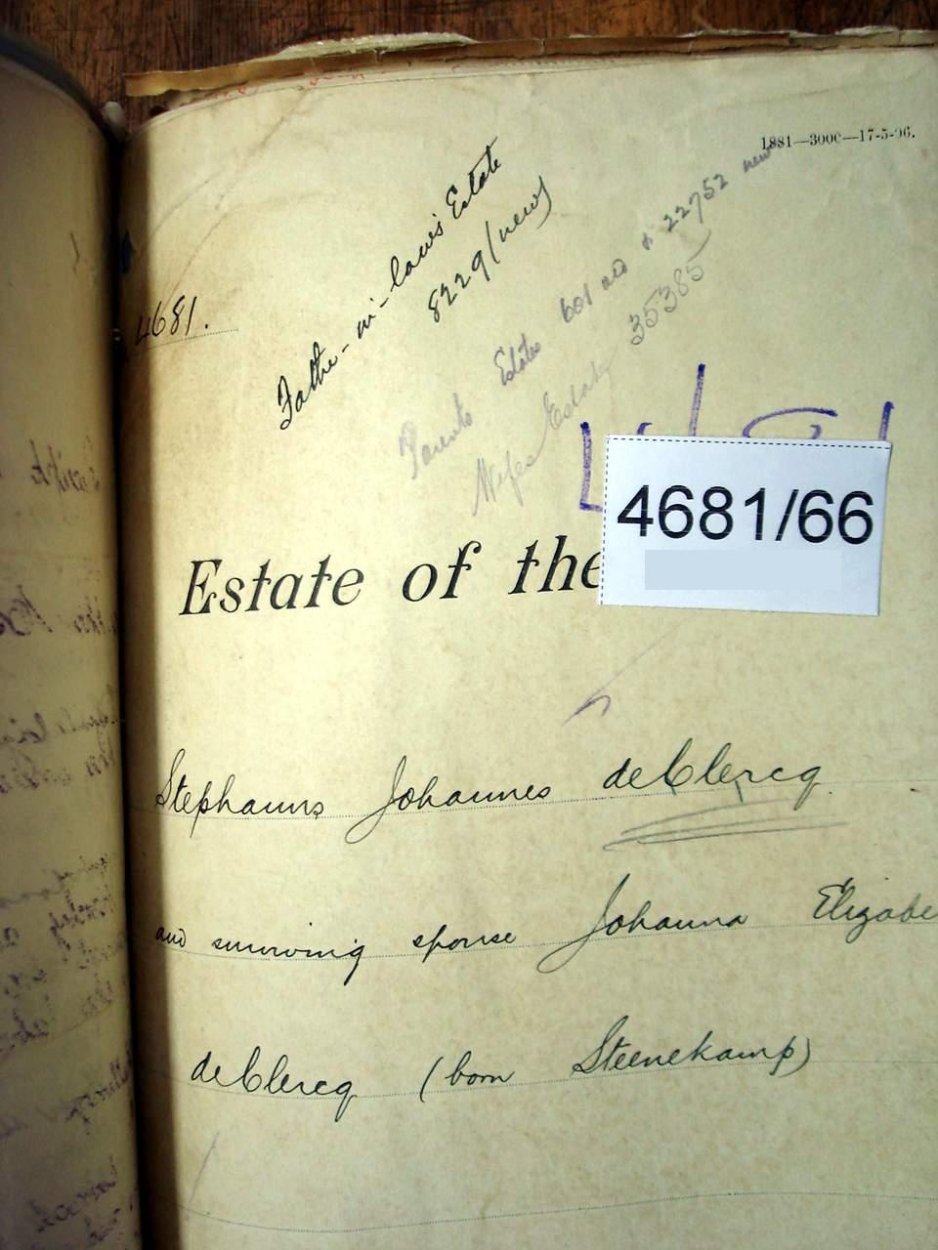 1881—3000—17-5-06.
Father-in-law's Estate
8229 (new)
Parents Estates 601 and 22752 new
Wifes Estate 35385
4681.
4681/66
Estate of the
Stephanus Johannes deClercq.
and surviving spouse Johanna Elizabe
deClercq (born Steenekamp)